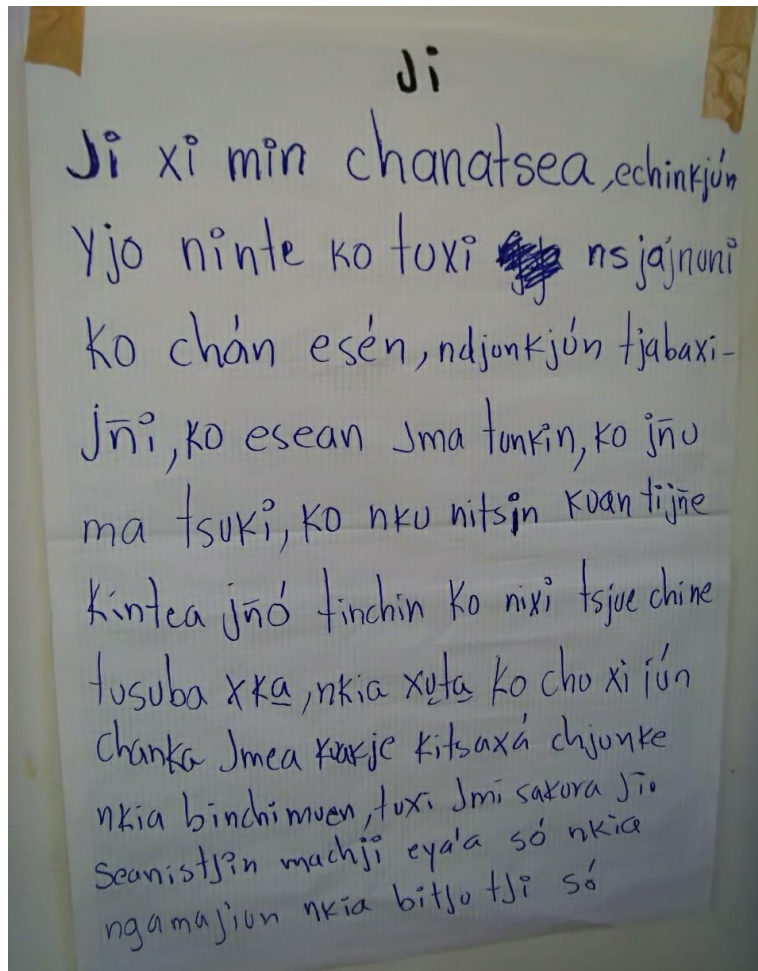 Ji
Ji xi min chanatsea, echinkjún
yjo ninte ko tuxi nsjajnuni
ko chán esén, ndjunkjún tjabaxi-
jñi, ko esean Jma tunkin, ko jñu
ma tsuki, ko nku nitsin kuan tijñe
kintea jñó tinchin ko nixi tsjue chine
tusuba xka̱, nkia xu̱ta̱ ko chu xi jún
chanka Jmea kuakje kitsaxá chjunke
nkia binchimuen, tuxi Jmi sakura
seanistjin machji eya'a só nkia
ngamajiun nkia bitju tji só